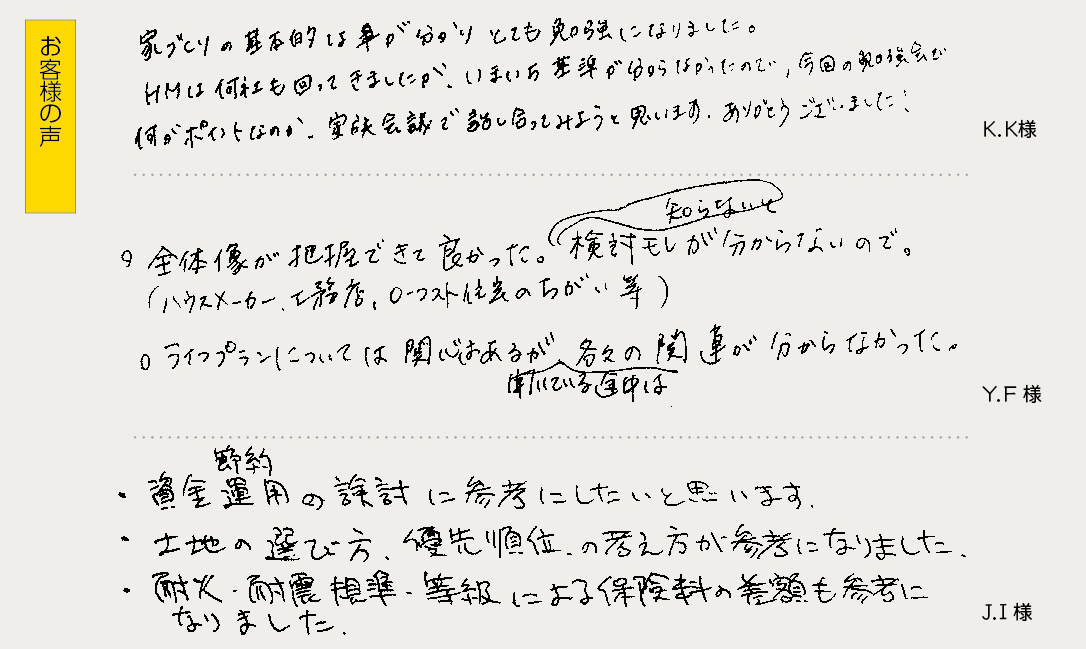 お客様の声
家づくりの基本的な事が分かりとても勉強になりました。
HMは何社も回ってきましたが、いまいち基準が分からなかったので、今回の勉強会で
何がポイントなのか、家族会議で話し合ってみようと思います。ありがとうございました!
K.K様
知らないと
○ 全体像が把握できて良かった。検討モレが分からないので。
(ハウスメーカー、工務店、ローコスト住宅のちがい等)
○ ライフプランについては関心はあるが、各々の関連が分からなかった。
聞いている途中は
Y.F 様
節約
・資金運用の検討に参考にしたいと思います。
・土地の選び方、優先順位、の考え方が参考になりました。
・耐火・耐震規準・等級による保険料の差額も参考に
なりました。
J.I 様